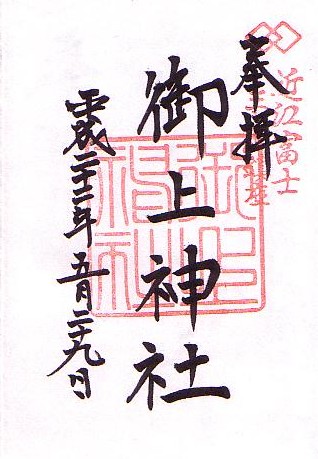 奉拝
近江富士
御上神社
御上神社
平成二十二年五月二十九日